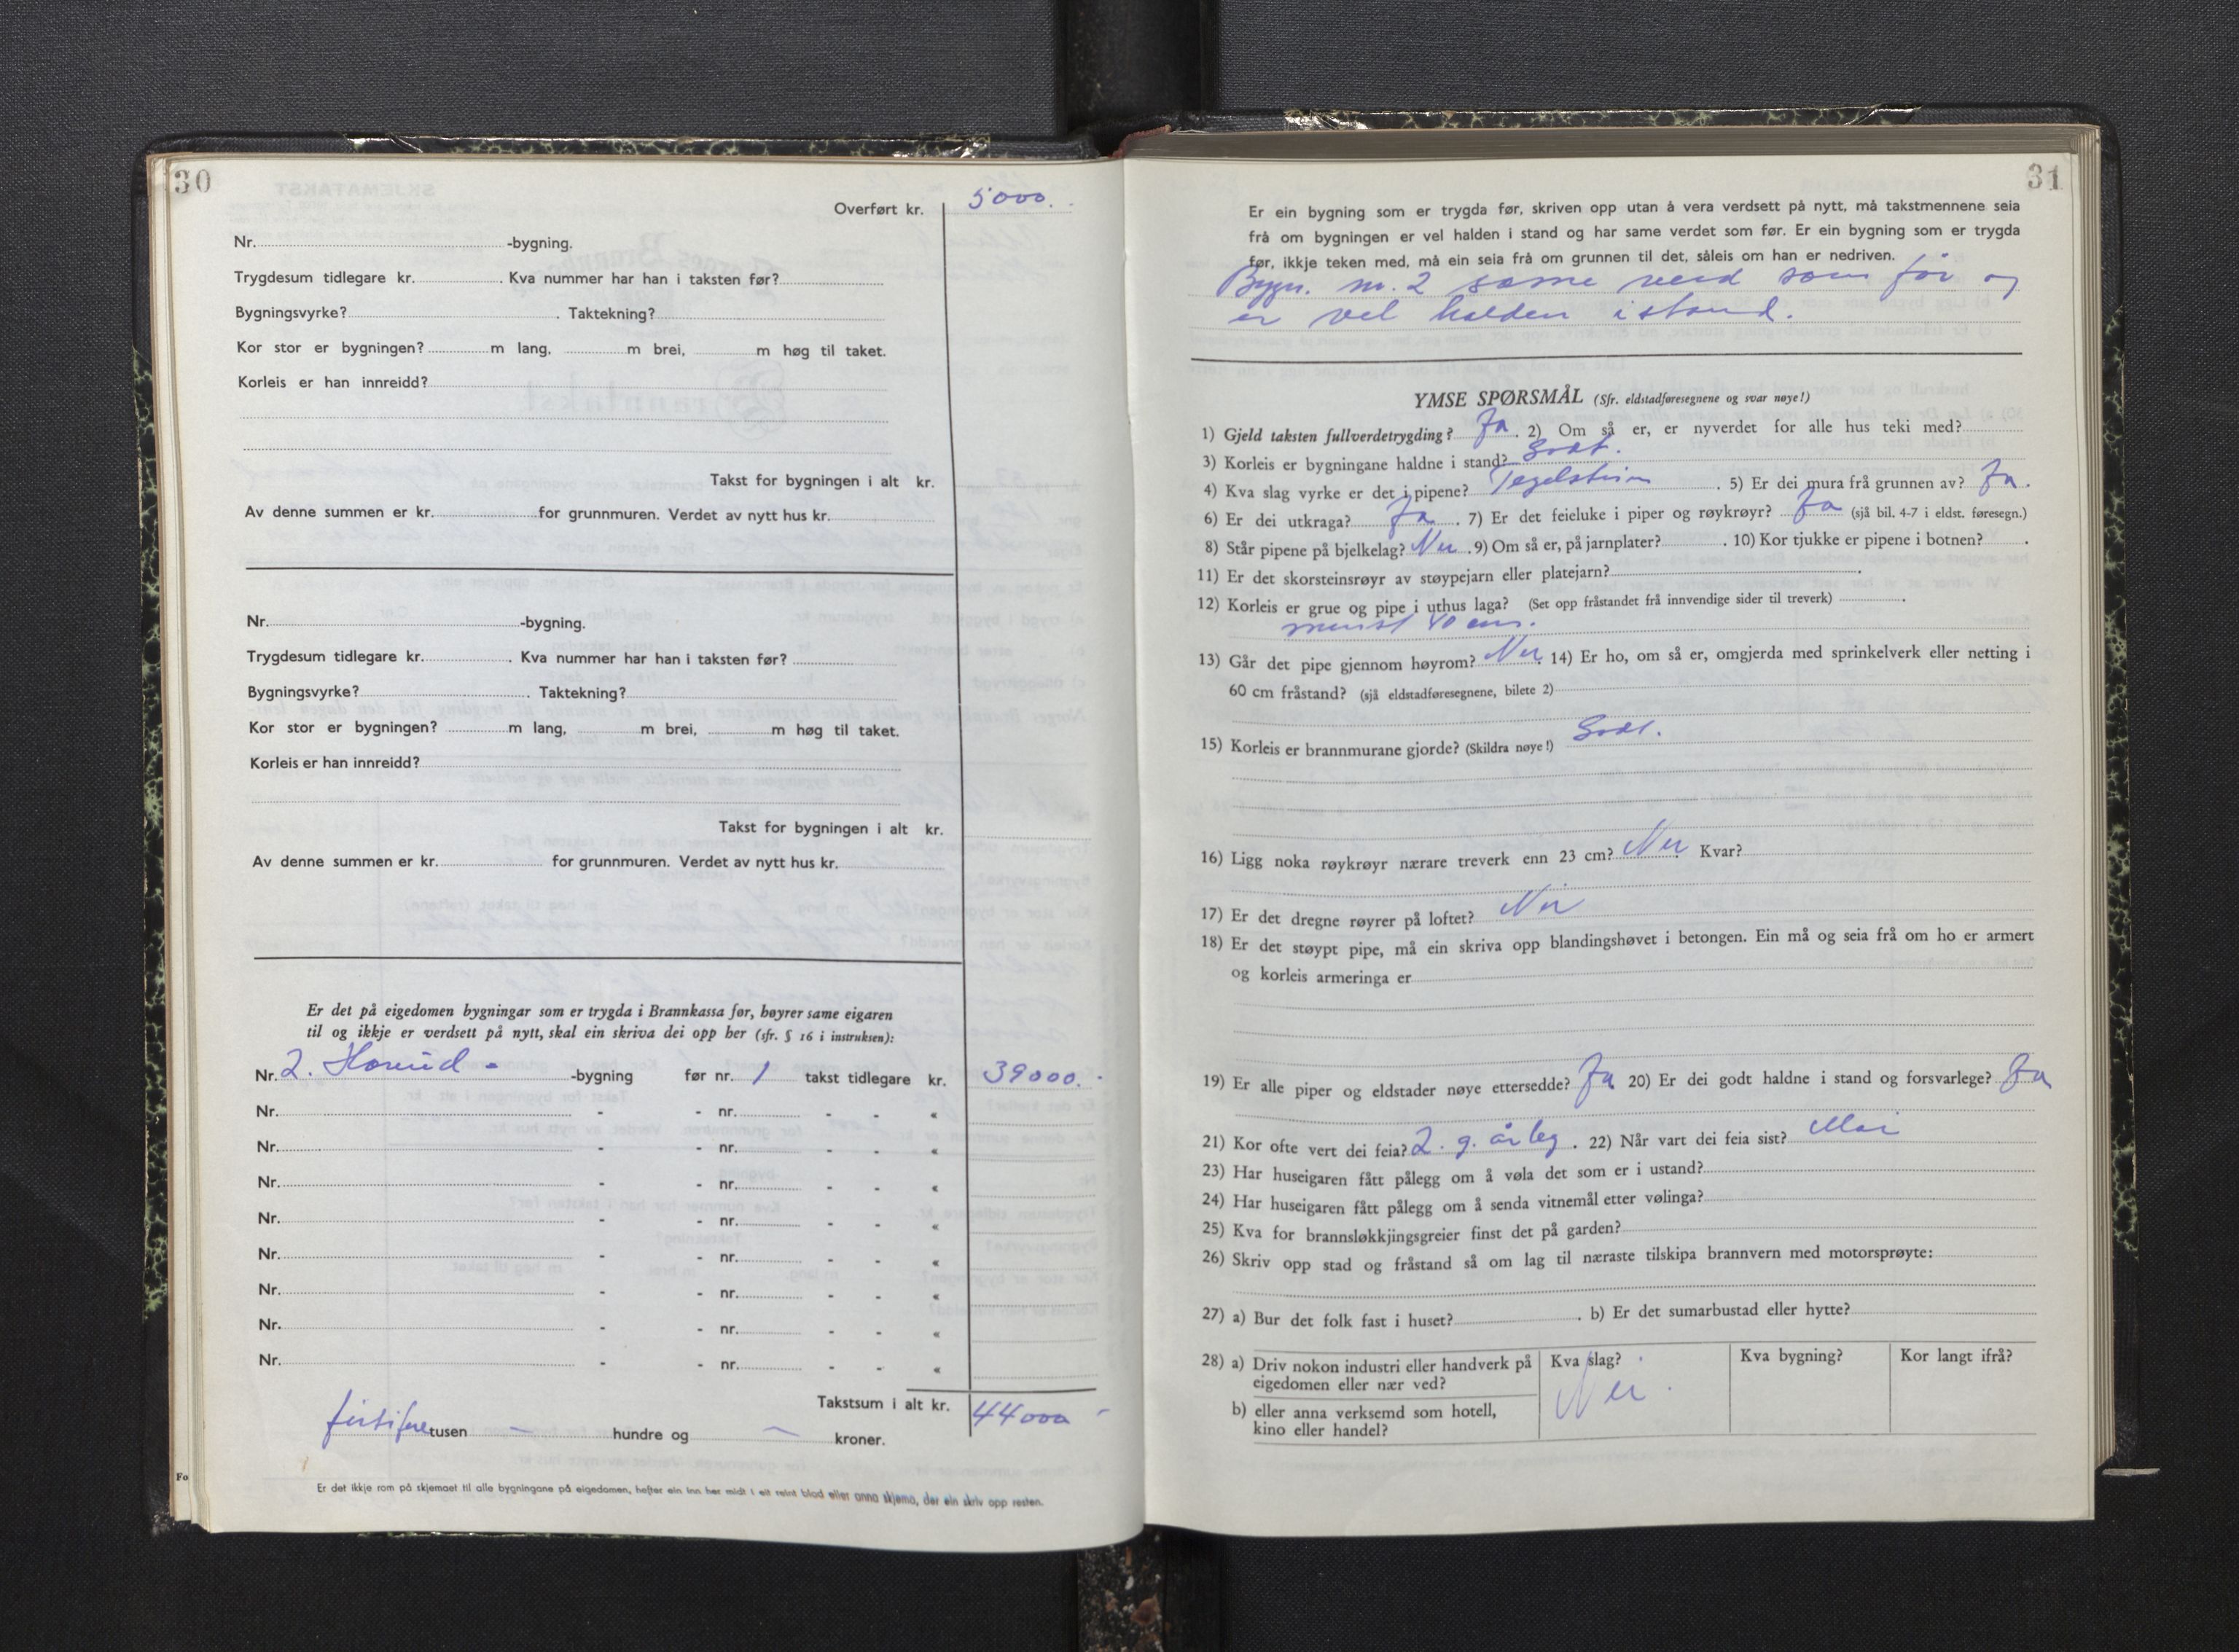 30
Overført kr. 5000.
Nr. -bygning.
Trygdesum tidlegare kr. . Kva nummer har han i taksten før?
Bygningsvyrke? . Taktekning?
Kor stor er bygningen? m lang, m brei, m høg til taket.
Korleis er han innreidd?
Takst for bygningen i alt kr.
Av denne summen er kr. for grunnmuren. Verdet av nytt hus kr.
Nr. -bygning.
Trygdesum tidlegare kr. . Kva nummer har han i taksten før?
Bygningsvyrke? . Taktekning?
Kor stor er bygningen? m lang, m brei, m høg til taket.
Korleis er han innreidd?
Takst for bygningen i alt kr.
Av denne summen er kr. for grunnmuren. Verdet av nytt hus kr.
Er det på eigedomen bygningar som er trygda i Brannkassa før, høyrer same eigaren
til og ikkje er verdsett på nytt, skal ein skriva dei opp her (sfr. § 16 i instruksen):
Nr. 2. Hovud- -bygning før nr. 1 takst tidlegare kr. 39000.-
Nr. - - nr. - - «
Nr. - - nr. - - «
Nr. - - nr. - - «
Nr. - - nr. - - «
Nr. - - nr. - - «
Nr. - - nr. - - «
Nr. - - nr. - - «
Nr. - - nr. - - «
Takstsum i alt kr. 44000 -
førtifire tusen — hundre og — kroner.
Fo
Er det ikkje rom på skjemaet til alle bygningane på eigedomen, hefter ein inn her midt i eit reint blad eller anna skjema, der ein skriv opp resten.
31
Er ein bygning som er trygda før, skriven opp utan å vera verdsett på nytt, må takstmennene seia
frå om bygningen er vel halden i stand og har same verdet som før. Er ein bygning som er trygda
før, ikkje teken med, må ein seia frå om grunnen til det, såleis om han er nedriven.
Bygn. nr. 2 same verd som før og
er vel halden istand.
YMSE SPØRSMÅL (Sfr. eldstadføresegnene og svar nøye!)
1) Gjeld taksten fullverdetrygding? Ja . 2) Om så er, er nyverdet for alle hus teki med?
3) Korleis er bygningane haldne i stand? Godt.
4) Kva slag vyrke er det i pipene? Teglstein . 5) Er dei mura frå grunnen av? Ja .
6) Er dei utkraga? Ja . 7) Er det feieluke i piper og røykrøyr? Ja (sjå bil. 4-7 i eldst. føresegn.)
8) Står pipene på bjelkelag? Nei . 9) Om så er, på jarnplater? . 10) Kor tjukke er pipene i botnen? .
11) Er det skorsteinsrøyr av støypejarn eller platejarn? .
12) Korleis er grue og pipe i uthus laga? (Set opp fråstandet frå innvendige sider til treverk) .
minst 40 cm.
13) Går det pipe gjennom høyrom? Nei . 14) Er ho, om så er, omgjerda med sprinkelverk eller netting i
60 cm fråstand? (sjå eldstadføresegnene, bilete 2)
15) Korleis er brannmurane gjorde? (Skildra nøye!) Godt.
16) Ligg noka røykrøyr nærare treverk enn 23 cm? Nei . Kvar?
17) Er det dregne røyrer på loftet? Nei
18) Er det støypt pipe, må ein skriva opp blandingshøvet i betongen. Ein må og seia frå om ho er armert
og korleis armeringa er
19) Er alle piper og eldstader nøye ettersedde? Ja 20) Er dei godt haldne i stand og forsvarlege? Ja
21) Kor ofte vert dei feia? 2. g. årleg . 22) Når vart dei feia sist? Mai
23) Har huseigaren fått pålegg om å vøla det som er i ustand?
24) Har huseigaren fått pålegg om å senda vitnemål etter vølinga?
25) Kva for brannsløkkjingsgreier finst det på garden?
26) Skriv opp stad og fråstand så om lag til næraste tilskipa brannvern med motorsprøyte:
27) a) Bur det folk fast i huset? . b) Er det sumarbustad eller hytte?
28) a) Driv nokon industri eller handverk på eigedomen eller nær ved? Kva slag? Kva bygning? Kor langt ifrå?
Nei.
b) eller anna verksemd som hotell,
kino eller handel?